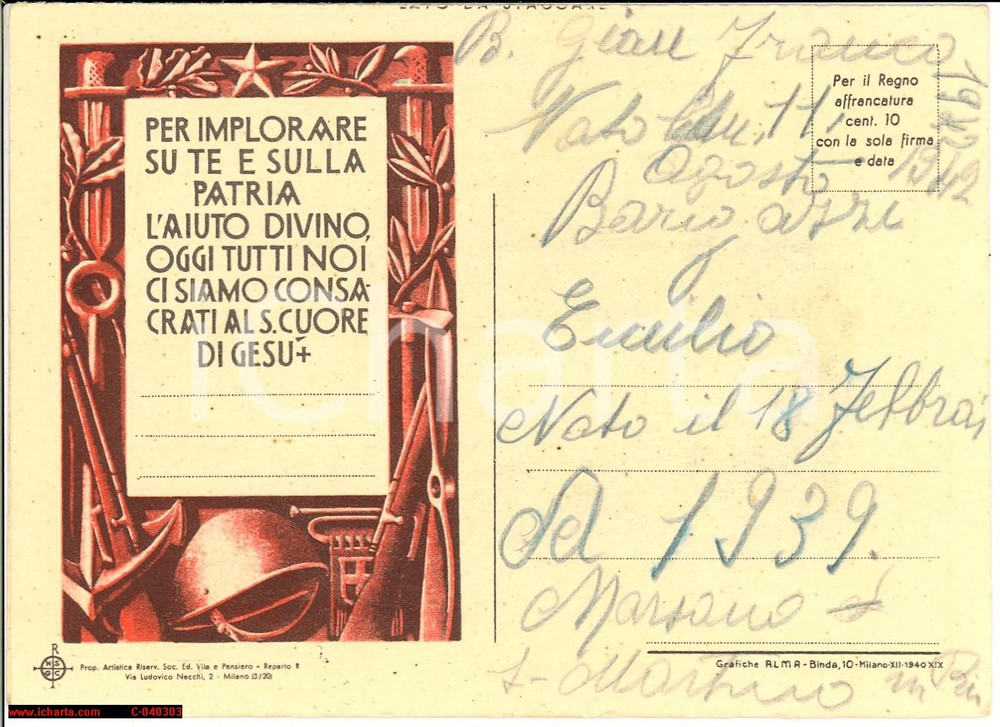 PER IMPLORARE
SU TE E SULLA
PATRIA
L'AIUTO DIVINO,
OGGI TUTTI NOI
CI SIAMO CONSA-
CRATI AL S. CUORE
DI GESU'+
Prop. Artistica Riserv. Soc. Ed. Vita e Pensiero - Reparto R
Via Ludovico Necchi, 2 - Milano (3/20)
DA STACCARE
B. Gian Franco
Per il Regno
affrancatura
cent. 10
con la sola firma
e data
Nato 11
Agosto 1942
1942
Emilio
Nato il 18 Febbrai
del 1939.
Marsano
S. Martino in
Grafiche ALMA - Binda, 10 - Milano - XII - 1940 XIX
icharta
www.icharta.com C-040303